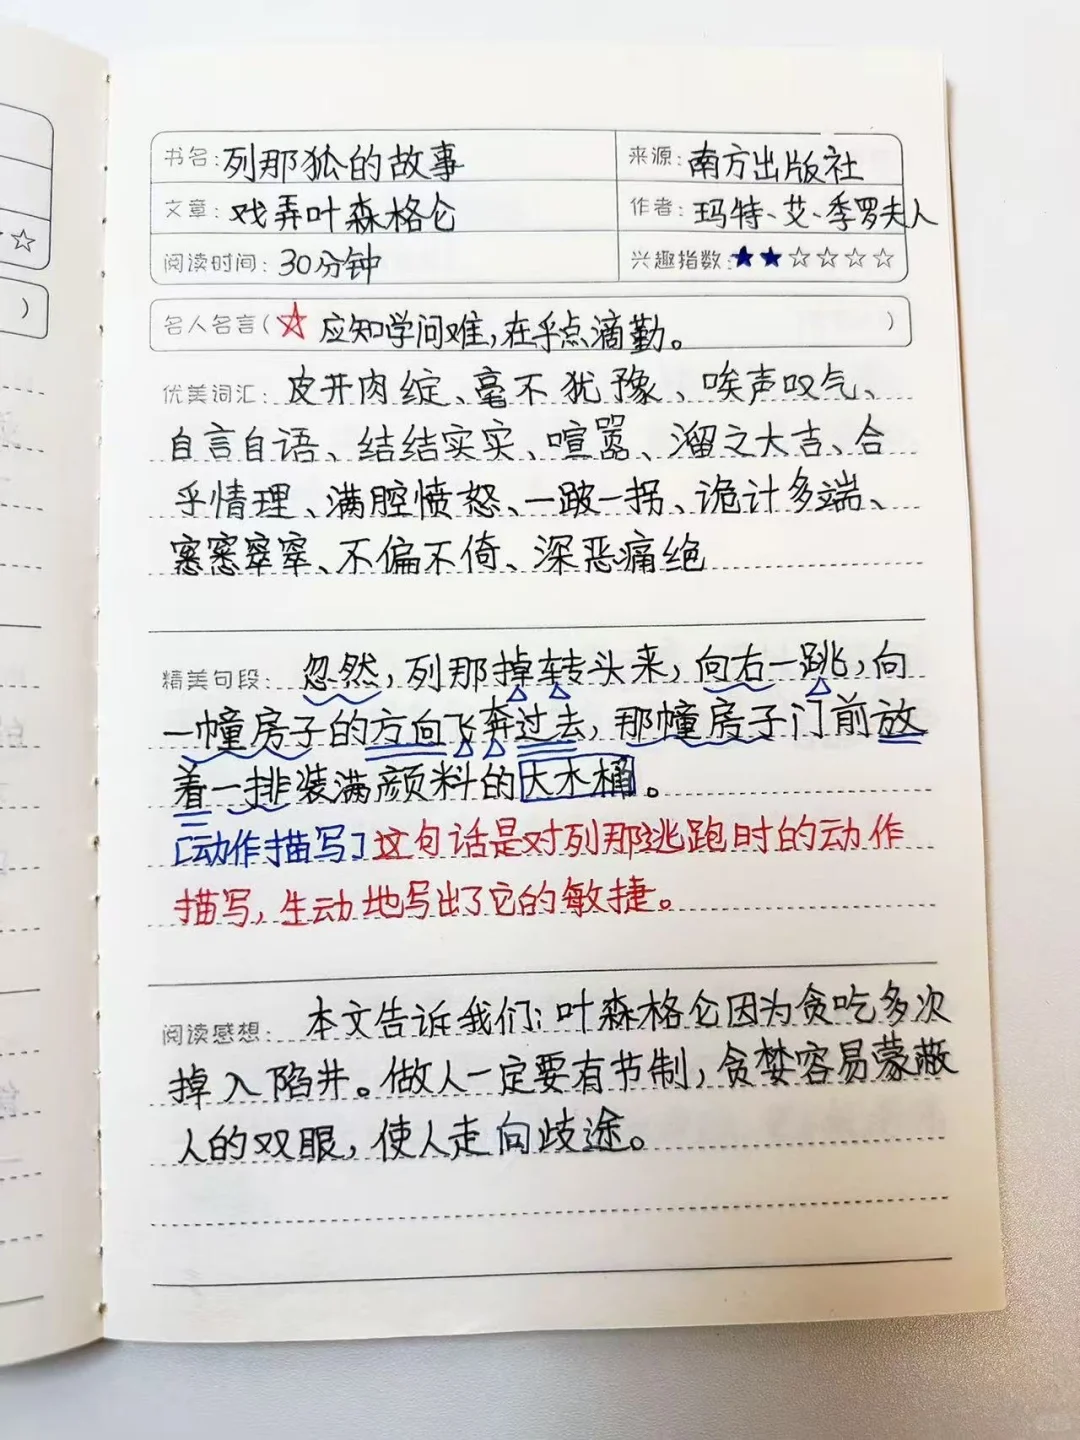 书名: 列那狐的故事
来源: 南方出版社
文章: 戏弄叶森格仑
作者: 玛特、艾、季罗夫人
阅读时间: 30分钟
兴趣指数: ★★☆☆☆☆
名人名言(☆ 应知学问难,在乎点滴勤。)
优美词汇: 皮开肉绽、毫不犹豫、唉声叹气、
自言自语、结结实实、喧嚣、溜之大吉、合
乎情理、满腔愤怒、一跛一拐、诡计多端、
窸窸窣窣、不偏不倚、深恶痛绝
精美句段: 忽然,列那掉转头来,向右一跳,向
一幢房子的方向飞奔过去,那幢房子门前放
着一排装满颜料的大木桶。
[动作描写]这句话是对列那逃跑时的动作
描写,生动地写出了它的敏捷。
阅读感想: 本文告诉我们:叶森格仑因为贪吃多次
掉入陷井。做人一定要有节制,贪婪容易蒙蔽
人的双眼,使人走向歧途。
☆
)